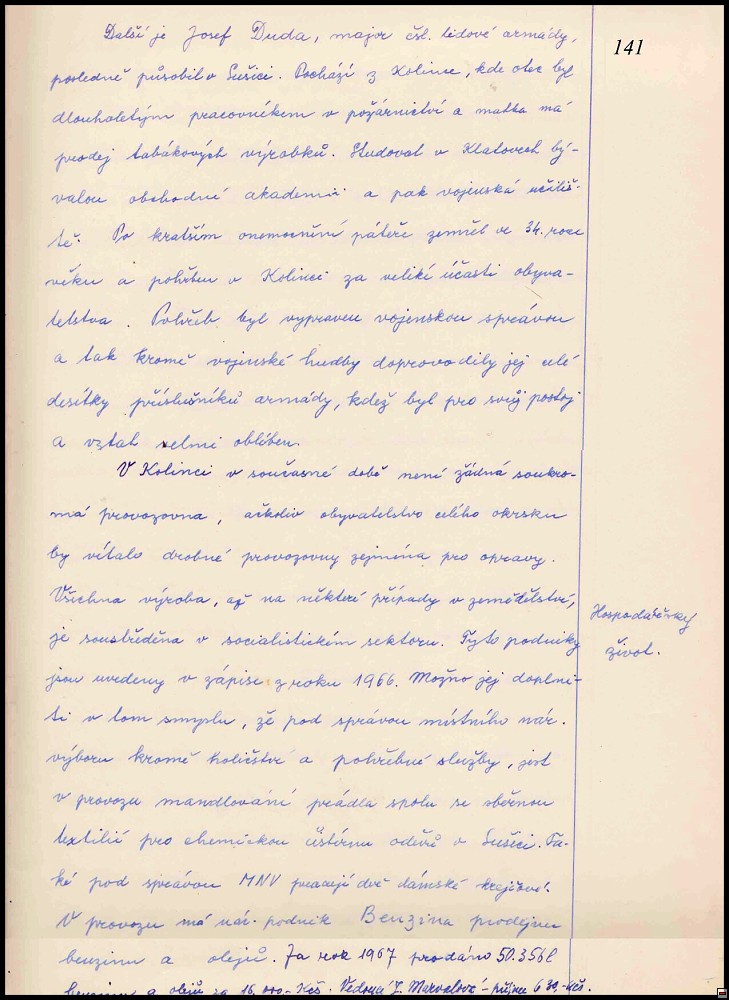 141
Další je Josef Duda, major čsl. lidové armády,
posledně působil v Sušici. Pochází z Kolince, kde otec byl
dlouholetým pracovníkem v požárnictví a matka má
prodej tabákových výrobků. Studoval v Klatovech bý-
valou obchodní akademii a pak vojenská učiliš-
tě. Po kratším onemocnění páteře zemřel ve 34. roce
věku a pohřben v Kolinci za veliké účasti obyva-
telstva. Pohřeb byl vypraven vojenskou správou
a tak kromě vojenské hudby doprovodily jej celé
desítky příslušníků armády, kdež byl pro svůj postoj
a vztah velmi oblíben.
V Kolinci v současné době není žádná soukro-
má provozovna, ačkoliv obyvatelstvo celého okrsku
by vítalo drobné provozovny zejména pro opravy.
Všechna výroba, až na některé případy v zemědělství,
je soustředěna v socialistickém sektoru. Tyto podniky
Hospodářský
život.
jsou uvedeny v zápise z roku 1966. Možno jej doplni-
ti v tom smyslu, že pod správou místního nár.
výboru kromě holičství a pohřební služby, jest
v provozu mandlování prádla spolu se sběrnou
textilií pro chemickou čistírnu oděvů v Sušici. Ta-
ké pod správou MNV pracují dvě dámské krejčové.
V provozu má nár. podnik Benzina prodejnu
benzinu a olejů. Za rok 1967 prodáno 50.356 l
benzinu a olejů za 16.000.- Kčs. Vedoucí J.